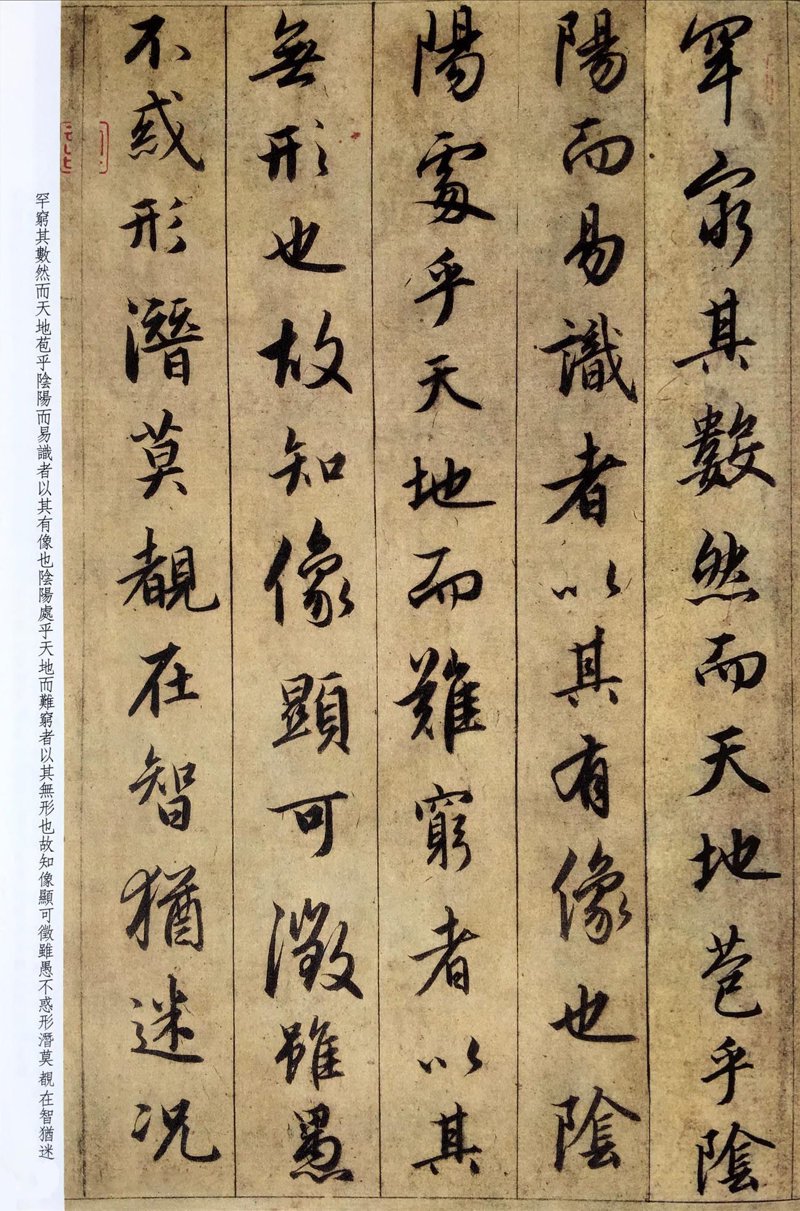 罕窮其數然而天地苞乎陰
陽而易識者以其有像也陰
陽處乎天地而難窮者以其
無形也故知像顯可徵雖愚
不惑形潛莫覩在智猶迷況
罕窮其數然而天地苞乎陰陽而易識者以其有像也陰陽處乎天地而難窮者以其無形也故知像顯可徵雖愚不惑形潛莫覩在智猶迷